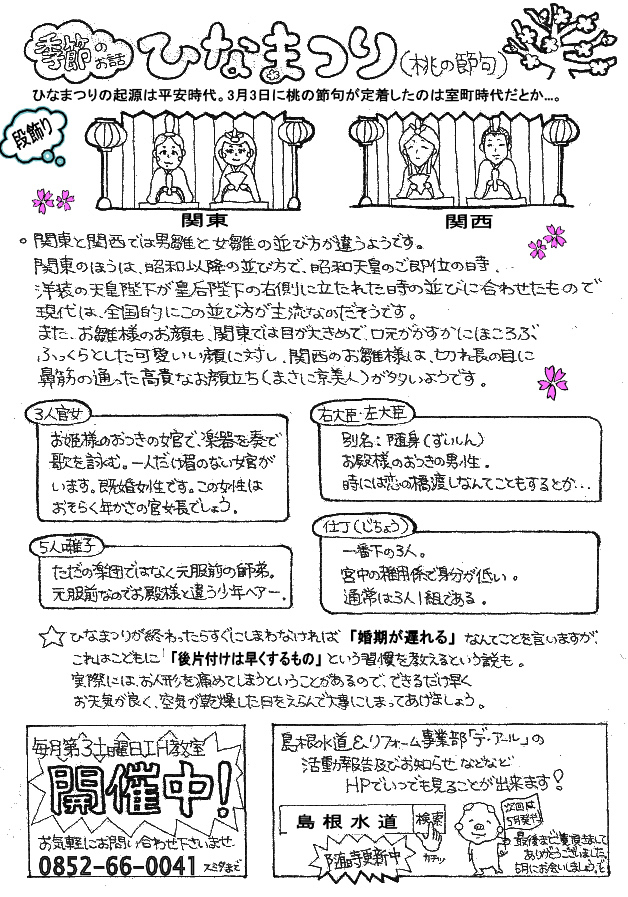 季節のお話 ひなまつり(桃の節句)
ひなまつりの起源は平安時代。3月3日に桃の節句が定着したのは室町時代だとか…。
段飾り
関東
関西
。関東と関西では男雛と女雛の並び方が違うようです。
関東のほうは、昭和以降の並び方で、昭和天皇のご即位の時、
洋装の天皇陛下が皇后陛下の右側に立たれた時の並びに合わせたもので
現代は、全国的にこの並び方が主流なのだそうです。
また、お雛様のお顔も、関東では目が大きめで、口元がかすかにほころぶ
ふっくらとした可愛いい顔に対し、関西のお雛様は、切れ長の目に
鼻筋の通った高貴なお顔立ち(まさに京美人)が多いようです。
3人官女
お姫様のおつきの女官で、楽器を奏で
歌を詠む。一人だけ眉のない女官が
います。既婚女性です。この女性は
おそらく年かさの官女長でしょう。
右大臣・左大臣
別名:随身(ずいしん)
お殿様のおつきの男性。
時には恋の橋渡しなんてこともするとか…
5人囃子
ただの楽団ではなく元服前の師弟。
元服前なのでお殿様と違う少年ヘアー。
仕丁(じちょう)
一番下の3人。
宮中の雑用係で身分が低い。
通常は3人1組である。
☆ひなまつりが終わったらすぐにしまわなければ「婚期が遅れる」なんてことを言いますが、
これはこどもに「後片付けは早くするもの」という習慣を教えるという説も。
実際には、お人形を痛めてしまうということがあるので、できるだけ早く
お天気が良く、空気が乾燥した日をえらんで大事にしまってあげましょう。
毎月第3土曜日IH教室
開催中!
お気軽にお問い合わせ下さいませ
0852-66-0041 スミダまで
島根水道&リフォーム事業部「デ・アール」の
活動報告及びお知らせなどなど
HPでいつでも見ることが出来ます!
島根水道 検索
随時更新中
カチッ
次回は
5月発行
最後までご覧頂きまして
ありがとうございました。
5月にお会いしましょう。